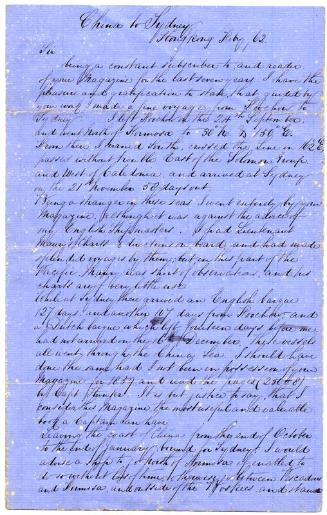 China to Sydney
Hongkong Feby, 62
Sir
being a constant subscriber to, and reader
of your Magazine for the last seven years. I have the
pleasure and gratification to state, that guided by
you I made a fine voyage from Foochow to
Sydney. I left Foochow on the 24th September,
and went North of Formosa to 30 N. & 150 E.
From there I steered South, crossed the Line in 162 E
passed without from the East of the Solomon Group
and West of Caledonia, and arrived at Sydney
on the 21 November 58 days out.
Being a stranger in these seas I went entirely by your
Magazine, although it was against the advice of
my English Shipmasters. I had Lieutenant
Maury's Charts & directions on board, and had made
splendid voyages by them; but in this part of the
Pacific Maury was short of observations, and his
charts are of very little use.
While at Sydney there arrived an English barque
137 days, and another 107 days from Foochow, and
a Dutch barque which left fourteen days before me
had not arrived on the December. These vessels
all went through the China Sea. I should have
done the same had I not been in possession of your
Magazine for 1859 and read the pages
by Capt It is but justice to say, that I
consider this Magazine the most useful and valuable
book a Captain can have.
Leaving the coast of China from the end of October
to the end of January bound for Sydney, I would
advise a ship to go North of Formosa if enabled to
do so without loss of time, otherwise go between Pescadores
and Formosa and outside of the and stand